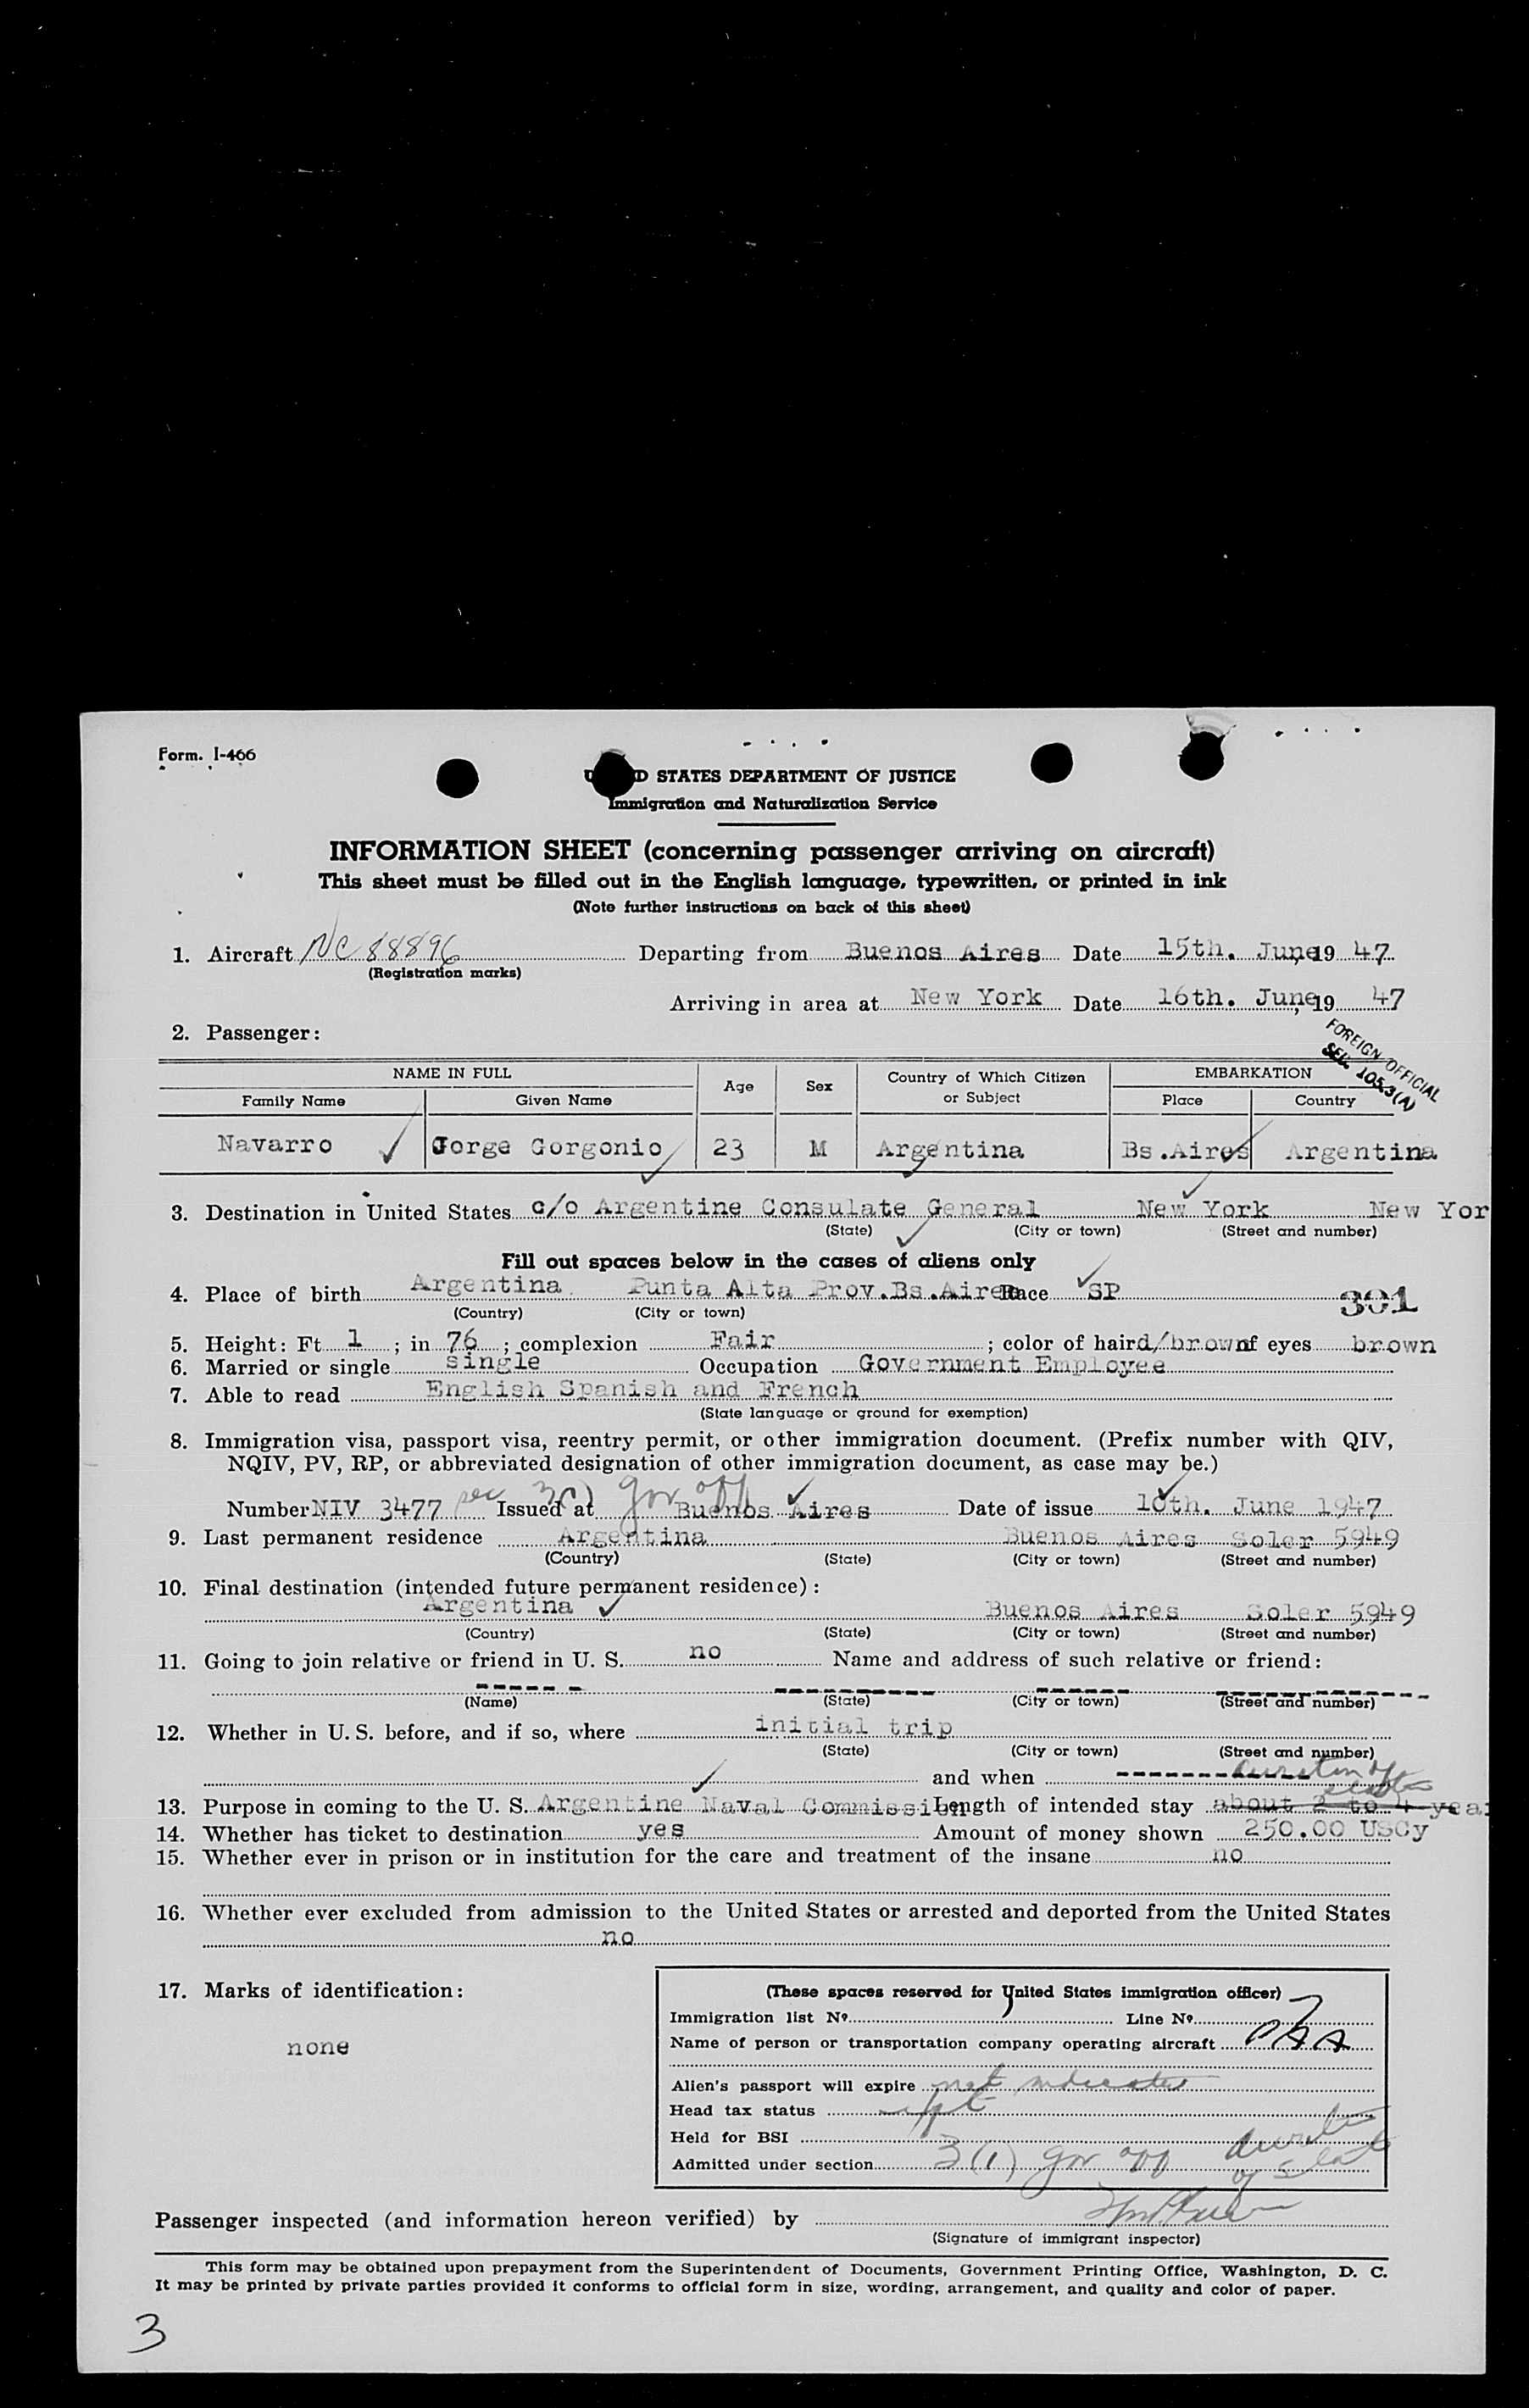 Form. I-466
D STATES DEPARTMENT OF JUSTICE
Immigration and Naturalization Service
INFORMATION SHEET (concerning passenger arriving on aircraft)
This sheet must be filled out in the English language, typewritten, or printed in ink
(Note further instructions on back of this sheet)
1. Aircraft NC 88896 Departing from Buenos Aires Date 15th. June, 19 47
(Registration marks)
Arriving in area at New York Date 16th. June, 19 47
2. Passenger:
FOREIGN OFFICIAL
SEC. 105.3(A)
NAME IN FULL Age Sex Country of Which Citizen or Subject EMBARKATION
Family Name Given Name Place Country
Navarro Jorge Gorgonio 23 M Argentina Bs.Aires Argentina
3. Destination in United States c/o Argentine Consulate General New York New Yor
(State) (City or town) (Street and number)
Fill out spaces below in the cases of aliens only
4. Place of birth Argentina Punta Alta Prov.Bs.Aires Race SP
(Country) (City or town)
301
5. Height: Ft 1 ; in 76 ; complexion Fair ; color of hair d/brown of eyes brown
6. Married or single single Occupation Government Employee
7. Able to read English Spanish and French
(State language or ground for exemption)
8. Immigration visa, passport visa, reentry permit, or other immigration document. (Prefix number with QIV,
NQIV, PV, RP, or abbreviated designation of other immigration document, as case may be.)
Number NIV 3477 sec 3(1) gov off Issued at Buenos Aires Date of issue 10th. June 1947
9. Last permanent residence Argentina Buenos Aires Soler 5949
(Country) (State) (City or town) (Street and number)
10. Final destination (intended future permanent residence):
Argentina Buenos Aires Soler 5949
(Country) (State) (City or town) (Street and number)
11. Going to join relative or friend in U. S. no Name and address of such relative or friend:
(Name) (State) (City or town) (Street and number)
12. Whether in U. S. before, and if so, where initial trip
(State) (City or town) (Street and number)
and when duration of status
13. Purpose in coming to the U. S. Argentine Naval Commission Length of intended stay about 2 to 4 year
14. Whether has ticket to destination yes Amount of money shown 250.00 USCy
15. Whether ever in prison or in institution for the care and treatment of the insane no
16. Whether ever excluded from admission to the United States or arrested and deported from the United States
no
17. Marks of identification:
none
(These spaces reserved for United States immigration officer)
Immigration list No. Line No. 7
Name of person or transportation company operating aircraft PAA
Alien's passport will expire not indicated
Head tax status
Held for BSI
Admitted under section 3(1) gov off duration of status
Passenger inspected (and information hereon verified) by
(Signature of immigrant inspector)
This form may be obtained upon prepayment from the Superintendent of Documents, Government Printing Office, Washington, D. C.
It may be printed by private parties provided it conforms to official form in size, wording, arrangement, and quality and color of paper.
3